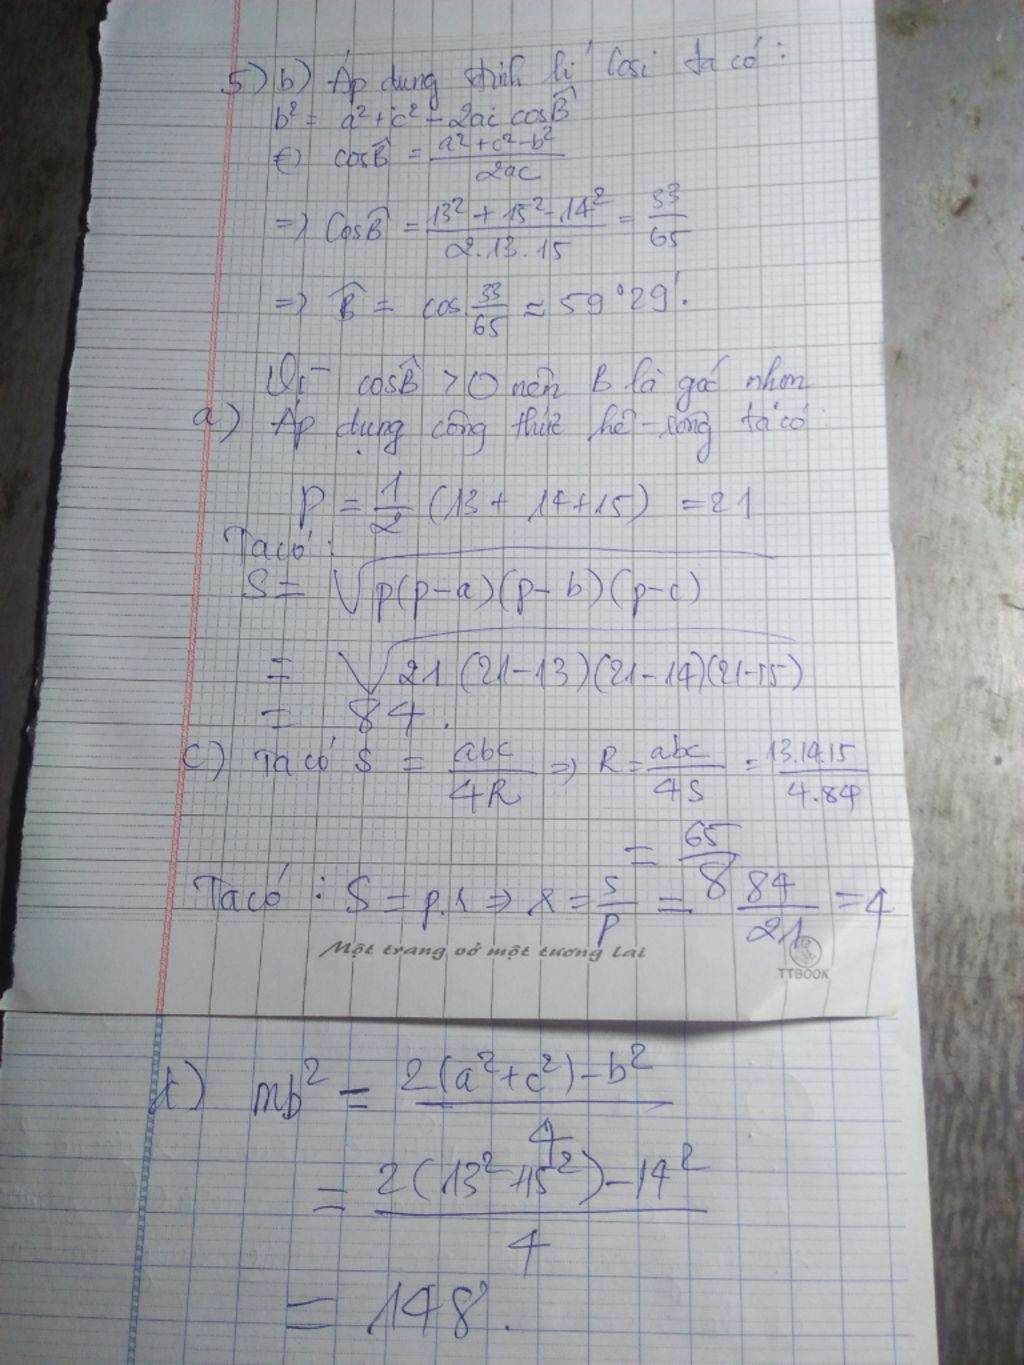 5) b) Áp dụng định lí Cosi ta có :
b² = a² + c² - 2ac cosB̂
<=> cosB̂ = (a² + c² - b²)/(2ac)
=> CosB̂ = (13² + 15² - 14²)/(2.13.15) = 33/65
=> B̂ = cos 33/65 ≈ 59°29'.
Vì cosB̂ > 0 nên B là góc nhọn
a) Áp dụng công thức hê-rông ta có :
P = 1/2 (13 + 14 + 15) = 21
Ta có :
S = √(p(p-a)(p-b)(p-c))
= √(21 (21-13)(21-14)(21-15))
= 84.
c) Ta có S = abc/4R => R = abc/4S = 13.14.15/4.84
= 65/8
Ta có : S = p.r => r = S/P = 84/21 = 4
Một trang vở một tương lai
TTBOOK
mb² = (2(a² + c²) - b²)/4
= (2(13² + 15²) - 14²)/4
= 148.